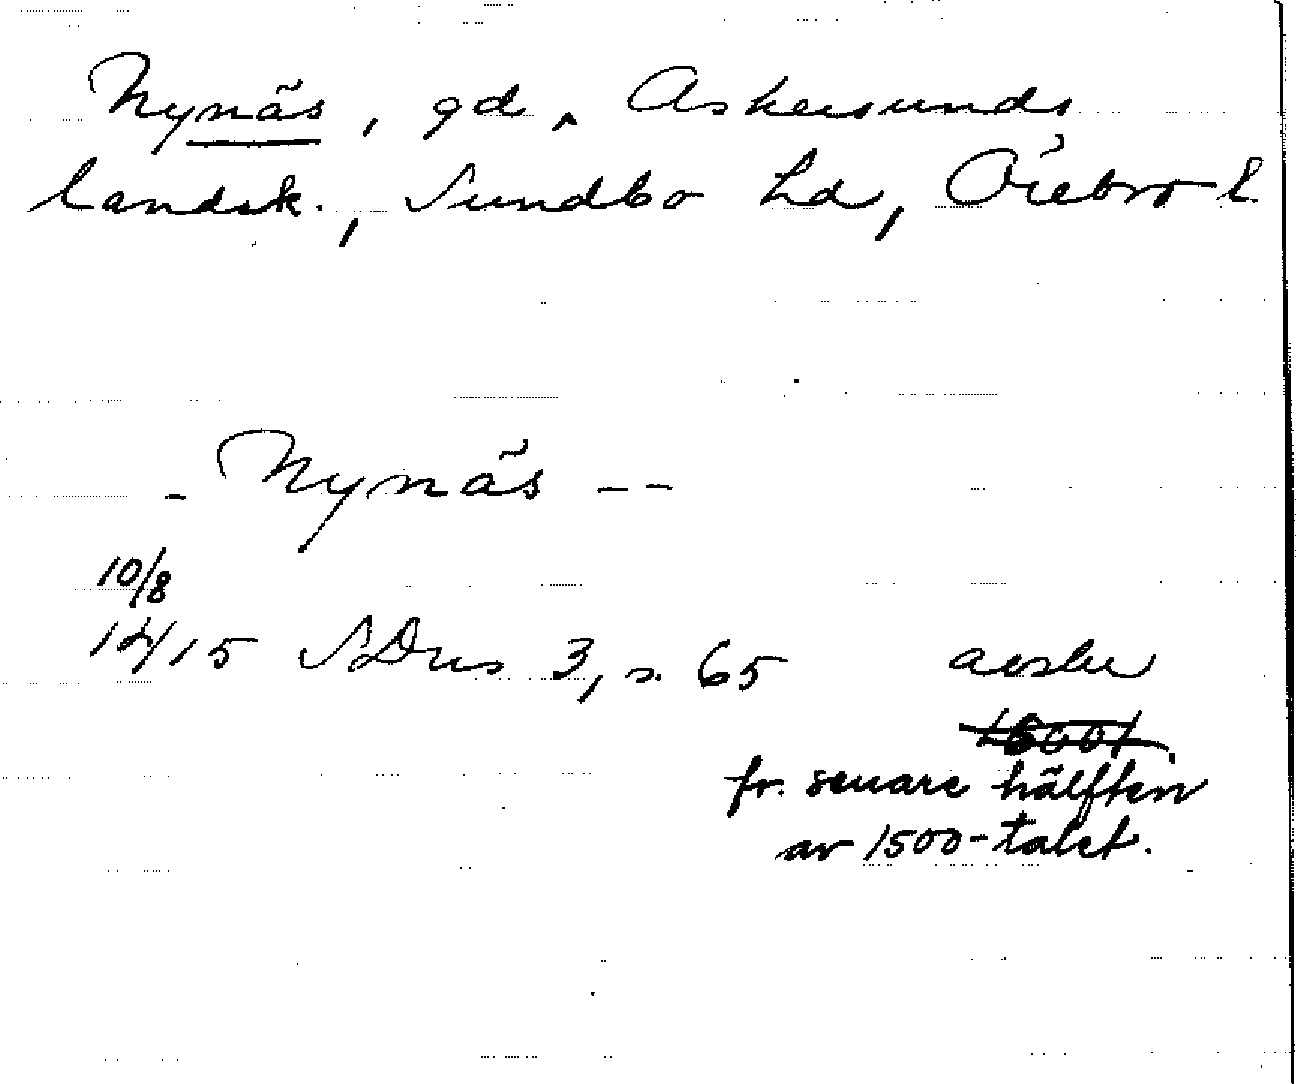 Nynäs, gd, Askersunds
landsk., Sundbo hd, Örebro l.
- Nynäs --
10/8
1415 SDns 3, s. 65 avskr
1600t
fr. senare hälften
av 1500-talet.